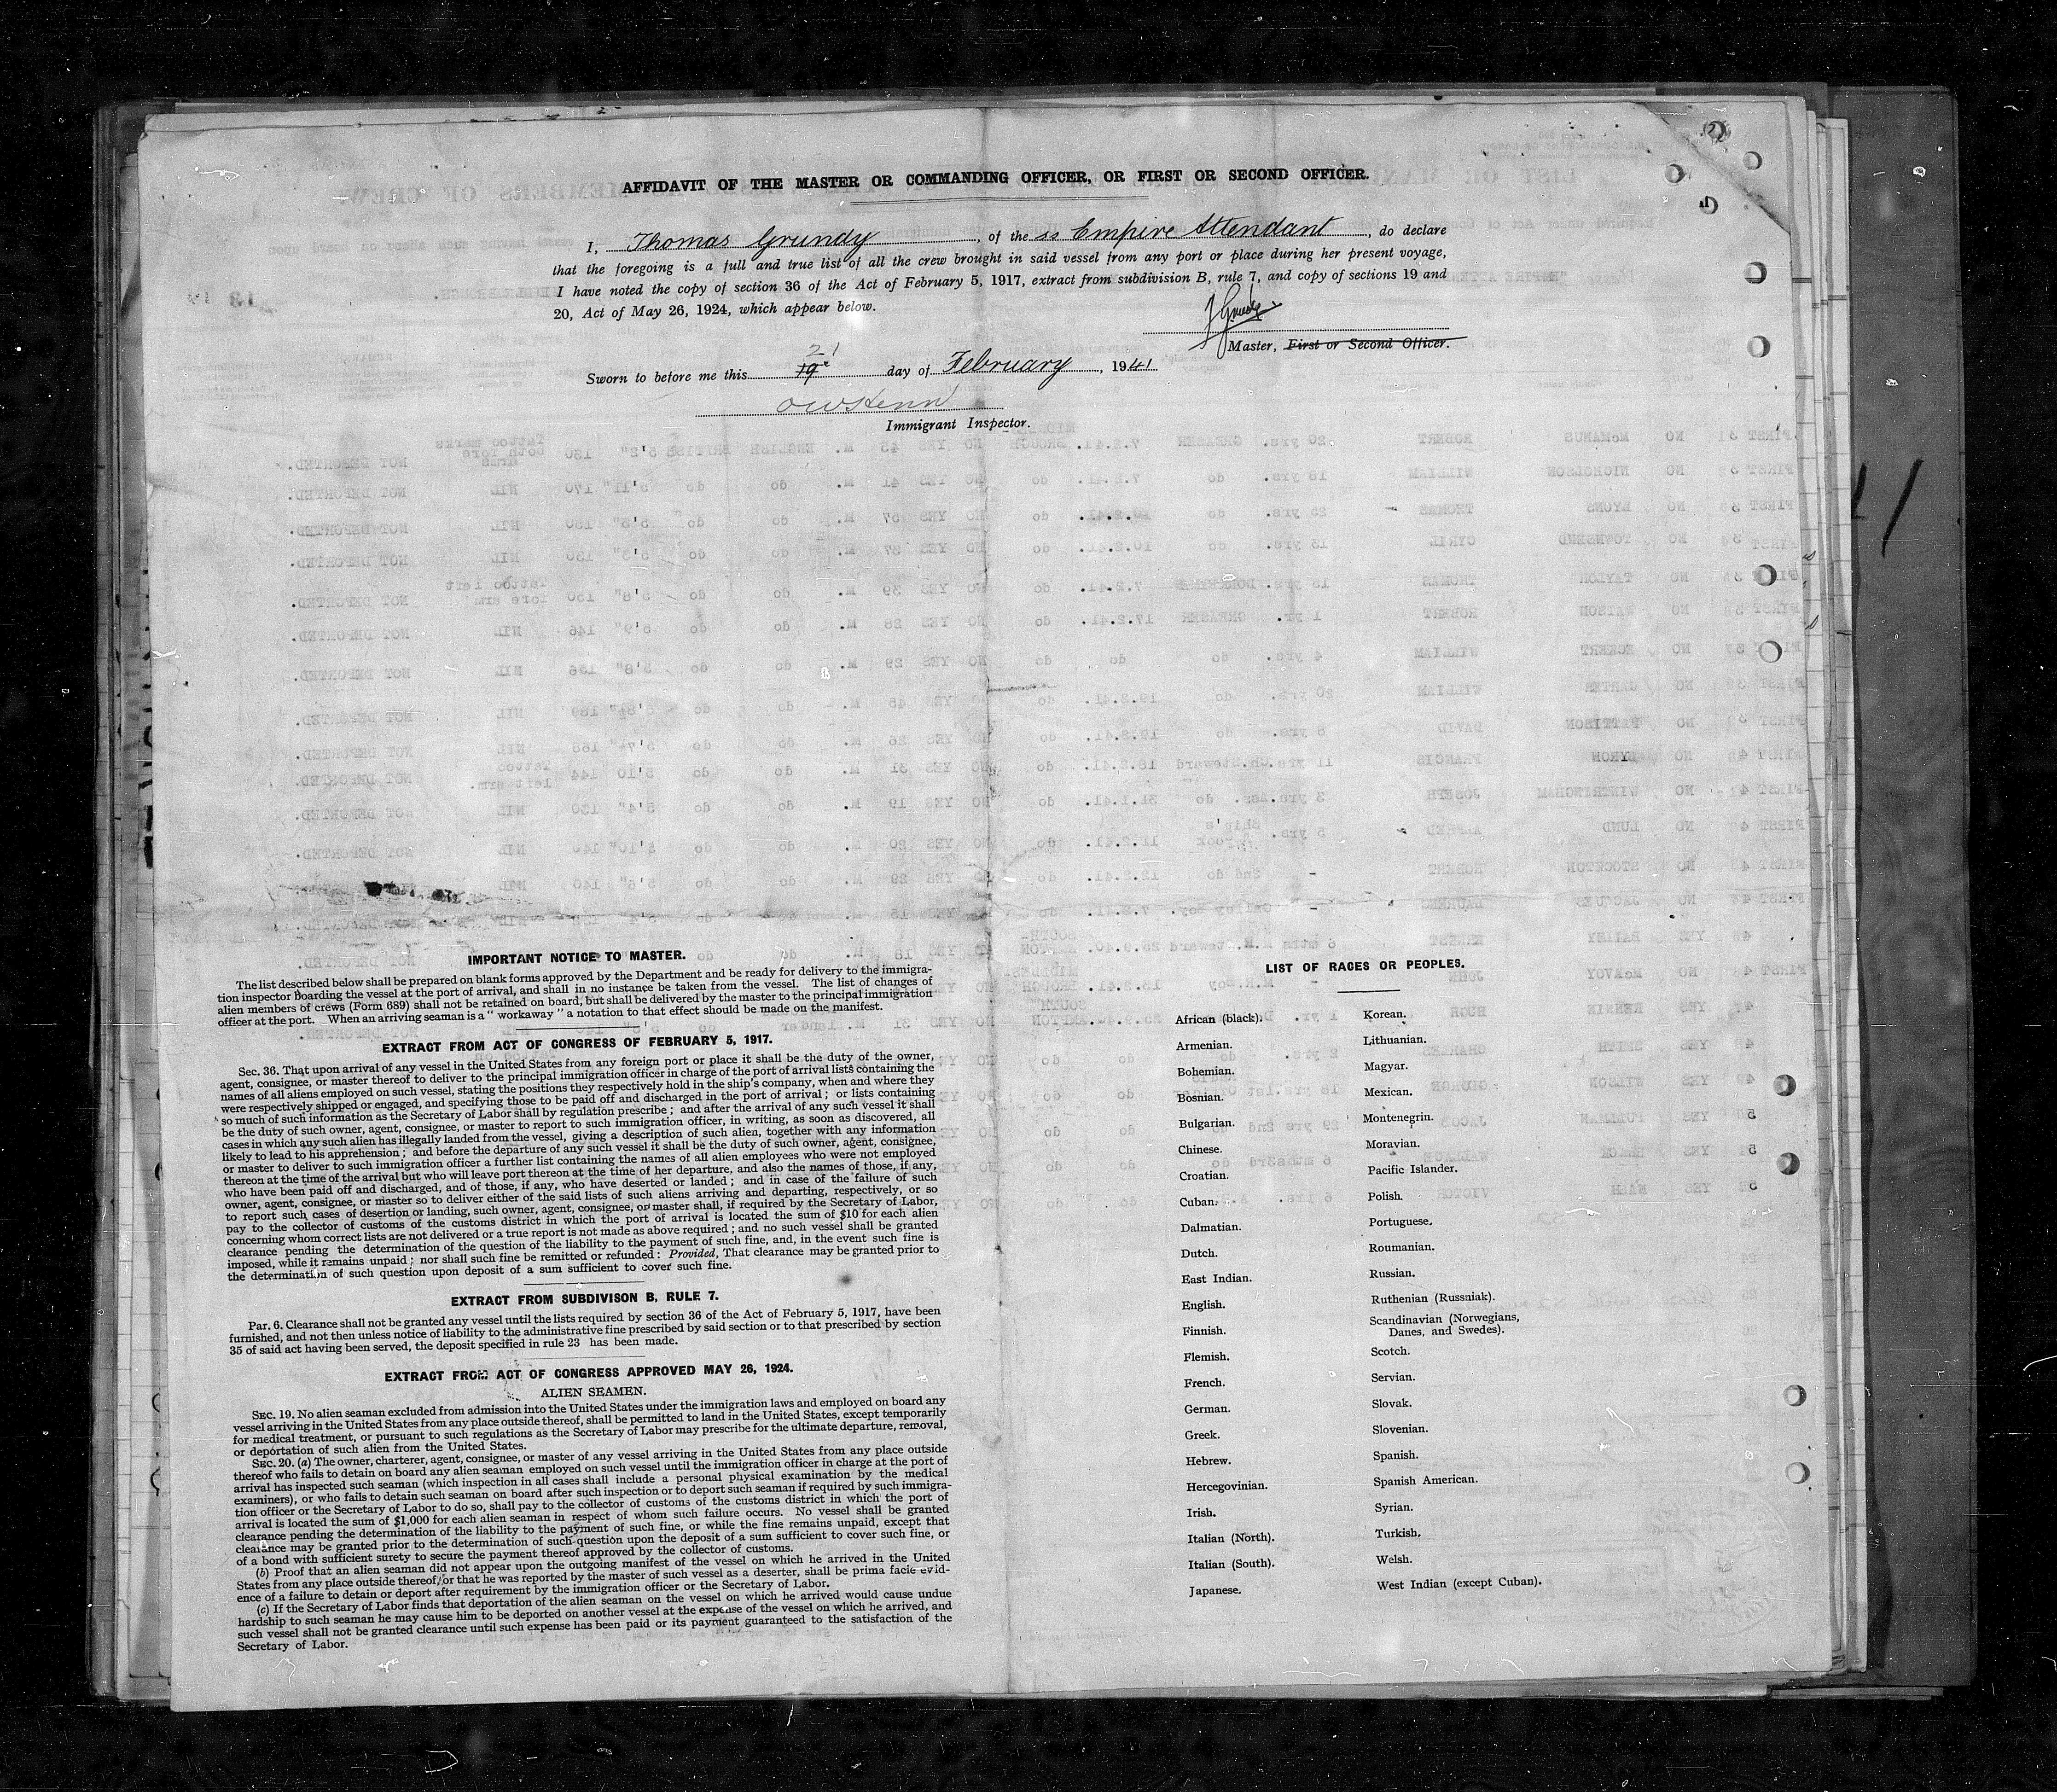 AFFIDAVIT OF THE MASTER OR COMMANDING OFFICER, OR FIRST OR SECOND OFFICER.
I, Thomas Grundy, of the ss Empire Attendant, do declare
that the foregoing is a full and true list of all the crew brought in said vessel from any port or place during her present voyage,
I have noted the copy of section 36 of the Act of February 5, 1917, extract from subdivision B, rule 7, and copy of sections 19 and
20, Act of May 26, 1924, which appear below.
T Grundy
Master, First or Second Officer.
21
Sworn to before me this 19 day of February, 1941
Immigrant Inspector.
IMPORTANT NOTICE TO MASTER.
The list described below shall be prepared on blank forms approved by the Department and be ready for delivery to the immigra-
tion inspector boarding the vessel at the port of arrival, and shall in no instance be taken from the vessel. The list of changes of
alien members of crews (Form 689) shall not be retained on board, but shall be delivered by the master to the principal immigration
officer at the port. When an arriving seaman is a "workaway" a notation to that effect should be made on the manifest.
EXTRACT FROM ACT OF CONGRESS OF FEBRUARY 5, 1917.
Sec. 36. That upon arrival of any vessel in the United States from any foreign port or place it shall be the duty of the owner,
agent, consignee, or master thereof to deliver to the principal immigration officer in charge of the port of arrival lists containing the
names of all aliens employed on such vessel, stating the positions they respectively hold in the ship's company, when and where they
were respectively shipped or engaged, and specifying those to be paid off and discharged in the port of arrival; or lists containing
so much of such information as the Secretary of Labor shall by regulation prescribe; and after the arrival of any such vessel it shall
be the duty of such owner, agent, consignee, or master to report to such immigration officer, in writing, as soon as discovered, all
cases in which any such alien has illegally landed from the vessel, giving a description of such alien, together with any information
likely to lead to his apprehension; and before the departure of any such vessel it shall be the duty of such owner, agent, consignee,
or master to deliver to such immigration officer a further list containing the names of all alien employees who were not employed
thereon at the time of the arrival but who will leave port thereon at the time of her departure, and also the names of those, if any,
who have been paid off and discharged, and of those, if any, who have deserted or landed; and in case of the failure of such
owner, agent, consignee, or master so to deliver either of the said lists of such aliens arriving and departing, respectively, or so
to report such cases of desertion or landing, such owner, agent, consignee, or master shall, if required by the Secretary of Labor,
pay to the collector of customs of the customs district in which the port of arrival is located the sum of $10 for each alien
concerning whom correct lists are not delivered or a true report is not made as above required; and no such vessel shall be granted
clearance pending the determination of the question of the liability to the payment of such fine, and, in the event such fine is
imposed, while it remains unpaid; nor shall such fine be remitted or refunded: Provided, That clearance may be granted prior to
the determination of such question upon deposit of a sum sufficient to cover such fine.
EXTRACT FROM SUBDIVISON B, RULE 7.
Par. 6. Clearance shall not be granted any vessel until the lists required by section 36 of the Act of February 5, 1917, have been
furnished, and not then unless notice of liability to the administrative fine prescribed by said section or to that prescribed by section
35 of said act having been served, the deposit specified in rule 23 has been made.
EXTRACT FROM ACT OF CONGRESS APPROVED MAY 26, 1924.
ALIEN SEAMEN.
SEC. 19. No alien seaman excluded from admission into the United States under the immigration laws and employed on board any
vessel arriving in the United States from any place outside thereof, shall be permitted to land in the United States, except temporarily
for medical treatment, or pursuant to such regulations as the Secretary of Labor may prescribe for the ultimate departure, removal,
or deportation of such alien from the United States.
SEC. 20. (a) The owner, charterer, agent, consignee, or master of any vessel arriving in the United States from any place outside
thereof who fails to detain on board any alien seaman employed on such vessel until the immigration officer in charge at the port of
arrival has inspected such seaman (which inspection in all cases shall include a personal physical examination by the medical
examiners), or who fails to detain such seaman on board after such inspection or to deport such seaman if required by such immigra-
tion officer or the Secretary of Labor to do so, shall pay to the collector of customs of the customs district in which the port of
arrival is located the sum of $1,000 for each alien seaman in respect of whom such failure occurs. No vessel shall be granted
clearance pending the determination of the liability to the payment of such fine, or while the fine remains unpaid, except that
clearance may be granted prior to the determination of such question upon the deposit of a sum sufficient to cover such fine, or
of a bond with sufficient surety to secure the payment thereof approved by the collector of customs.
(b) Proof that an alien seaman did not appear upon the outgoing manifest of the vessel on which he arrived in the United
States from any place outside thereof, or that he was reported by the master of such vessel as a deserter, shall be prima facie evid-
ence of a failure to detain or deport after requirement by the immigration officer or the Secretary of Labor.
(c) If the Secretary of Labor finds that deportation of the alien seaman on the vessel on which he arrived would cause undue
hardship to such seaman he may cause him to be deported on another vessel at the expense of the vessel on which he arrived, and
such vessel shall not be granted clearance until such expense has been paid or its payment guaranteed to the satisfaction of the
Secretary of Labor.
LIST OF RACES OR PEOPLES.
African (black).
Armenian.
Bohemian.
Bosnian.
Bulgarian.
Chinese.
Croatian.
Cuban.
Dalmatian.
Dutch.
East Indian.
English.
Finnish.
Flemish.
French.
German.
Greek.
Hebrew.
Hercegovinian.
Irish.
Italian (North).
Italian (South).
Japanese.
Korean.
Lithuanian.
Magyar.
Mexican.
Montenegrin.
Moravian.
Pacific Islander.
Polish.
Portuguese.
Roumanian.
Russian.
Ruthenian (Russniak).
Scandinavian (Norwegians,
Danes, and Swedes).
Scotch.
Servian.
Slovak.
Slovenian.
Spanish.
Spanish American.
Syrian.
Turkish.
Welsh.
West Indian (except Cuban).